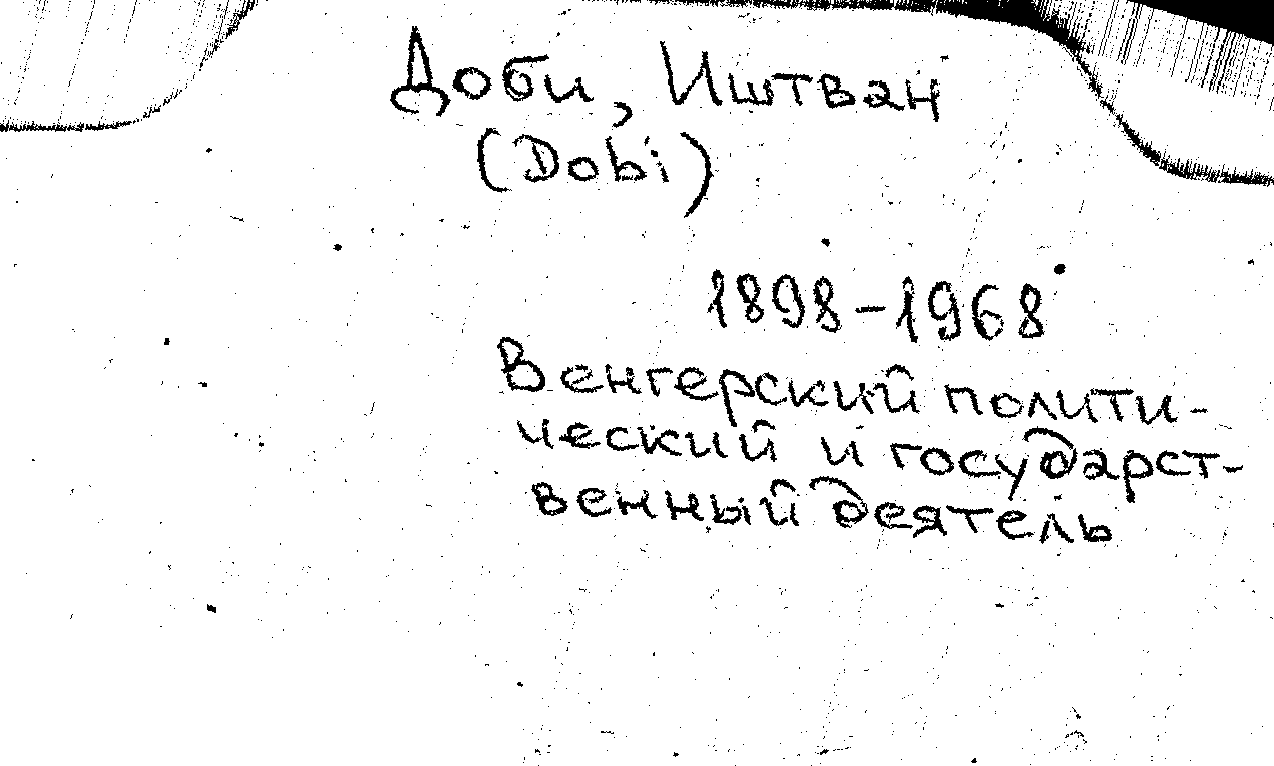 Доби, Иштван
(Dobi)
1898-1968
Венгерский полити-
ческий и государст-
венный деятель